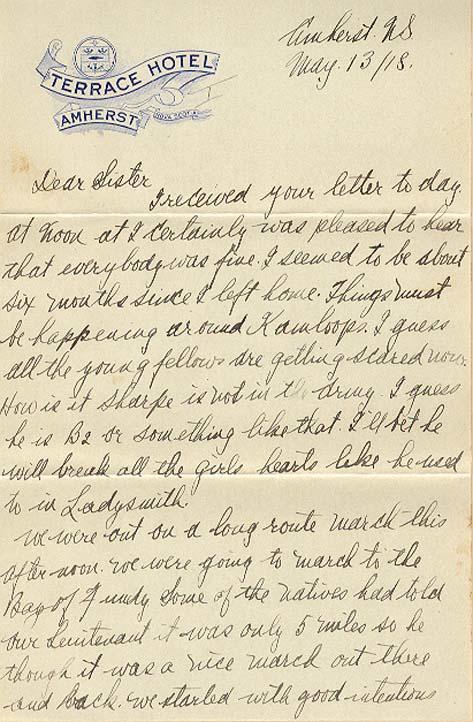 TERRACE HOTEL
AMHERST
NOVA SCOTIA
Amherst. NS
May. 13/18.
Dear Sister
I received your letter to day.
at Noon at I certainly was pleased to hear
that everybody was fine. I seemed to be about
six months since I left home. Things must
be happening around Kamloops. I guess
all the young fellows are gething scared now.
How is it Sharpe is not in the army. I guess
he is B2 or something like that. I'll bet he
will break all the girls hearts like he used
to in Ladysmith.
We were out on a long route march this
after noon. we were going to march to the
Bay of Fundy Some of the natives had told
our Leutenant it was only 5 miles so he
though it was a nice march out there
and back. we started with good intentions